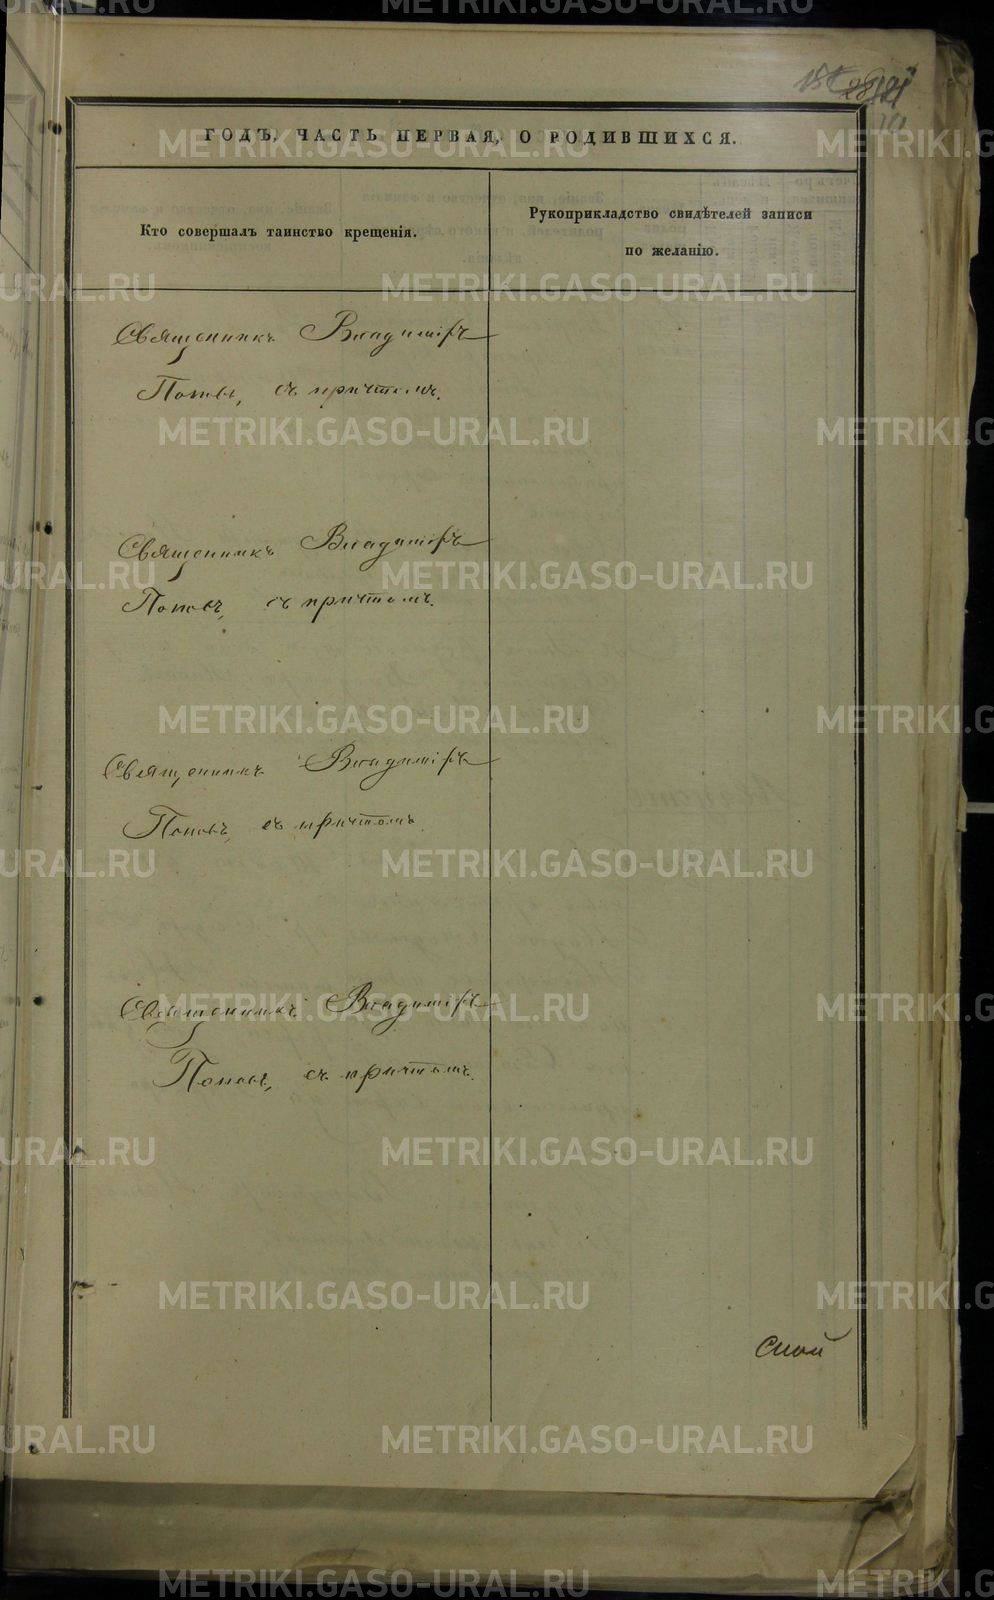 ГОДЪ, ЧАСТЬ ПЕРВАЯ, О РОДИВШИХСЯ.
Кто совершалъ таинство крещенія.
Рукоприкладство свидѣтелей записи
по желанію.
Священникъ Владиміръ
Поповъ, съ причтомъ.
Священникъ Владиміръ
Поповъ, съ причтомъ.
Священникъ Владиміръ
Поповъ, съ причтомъ.
Священникъ Владиміръ
Поповъ, съ причтомъ.
METRIKI.GASO-URAL.RU